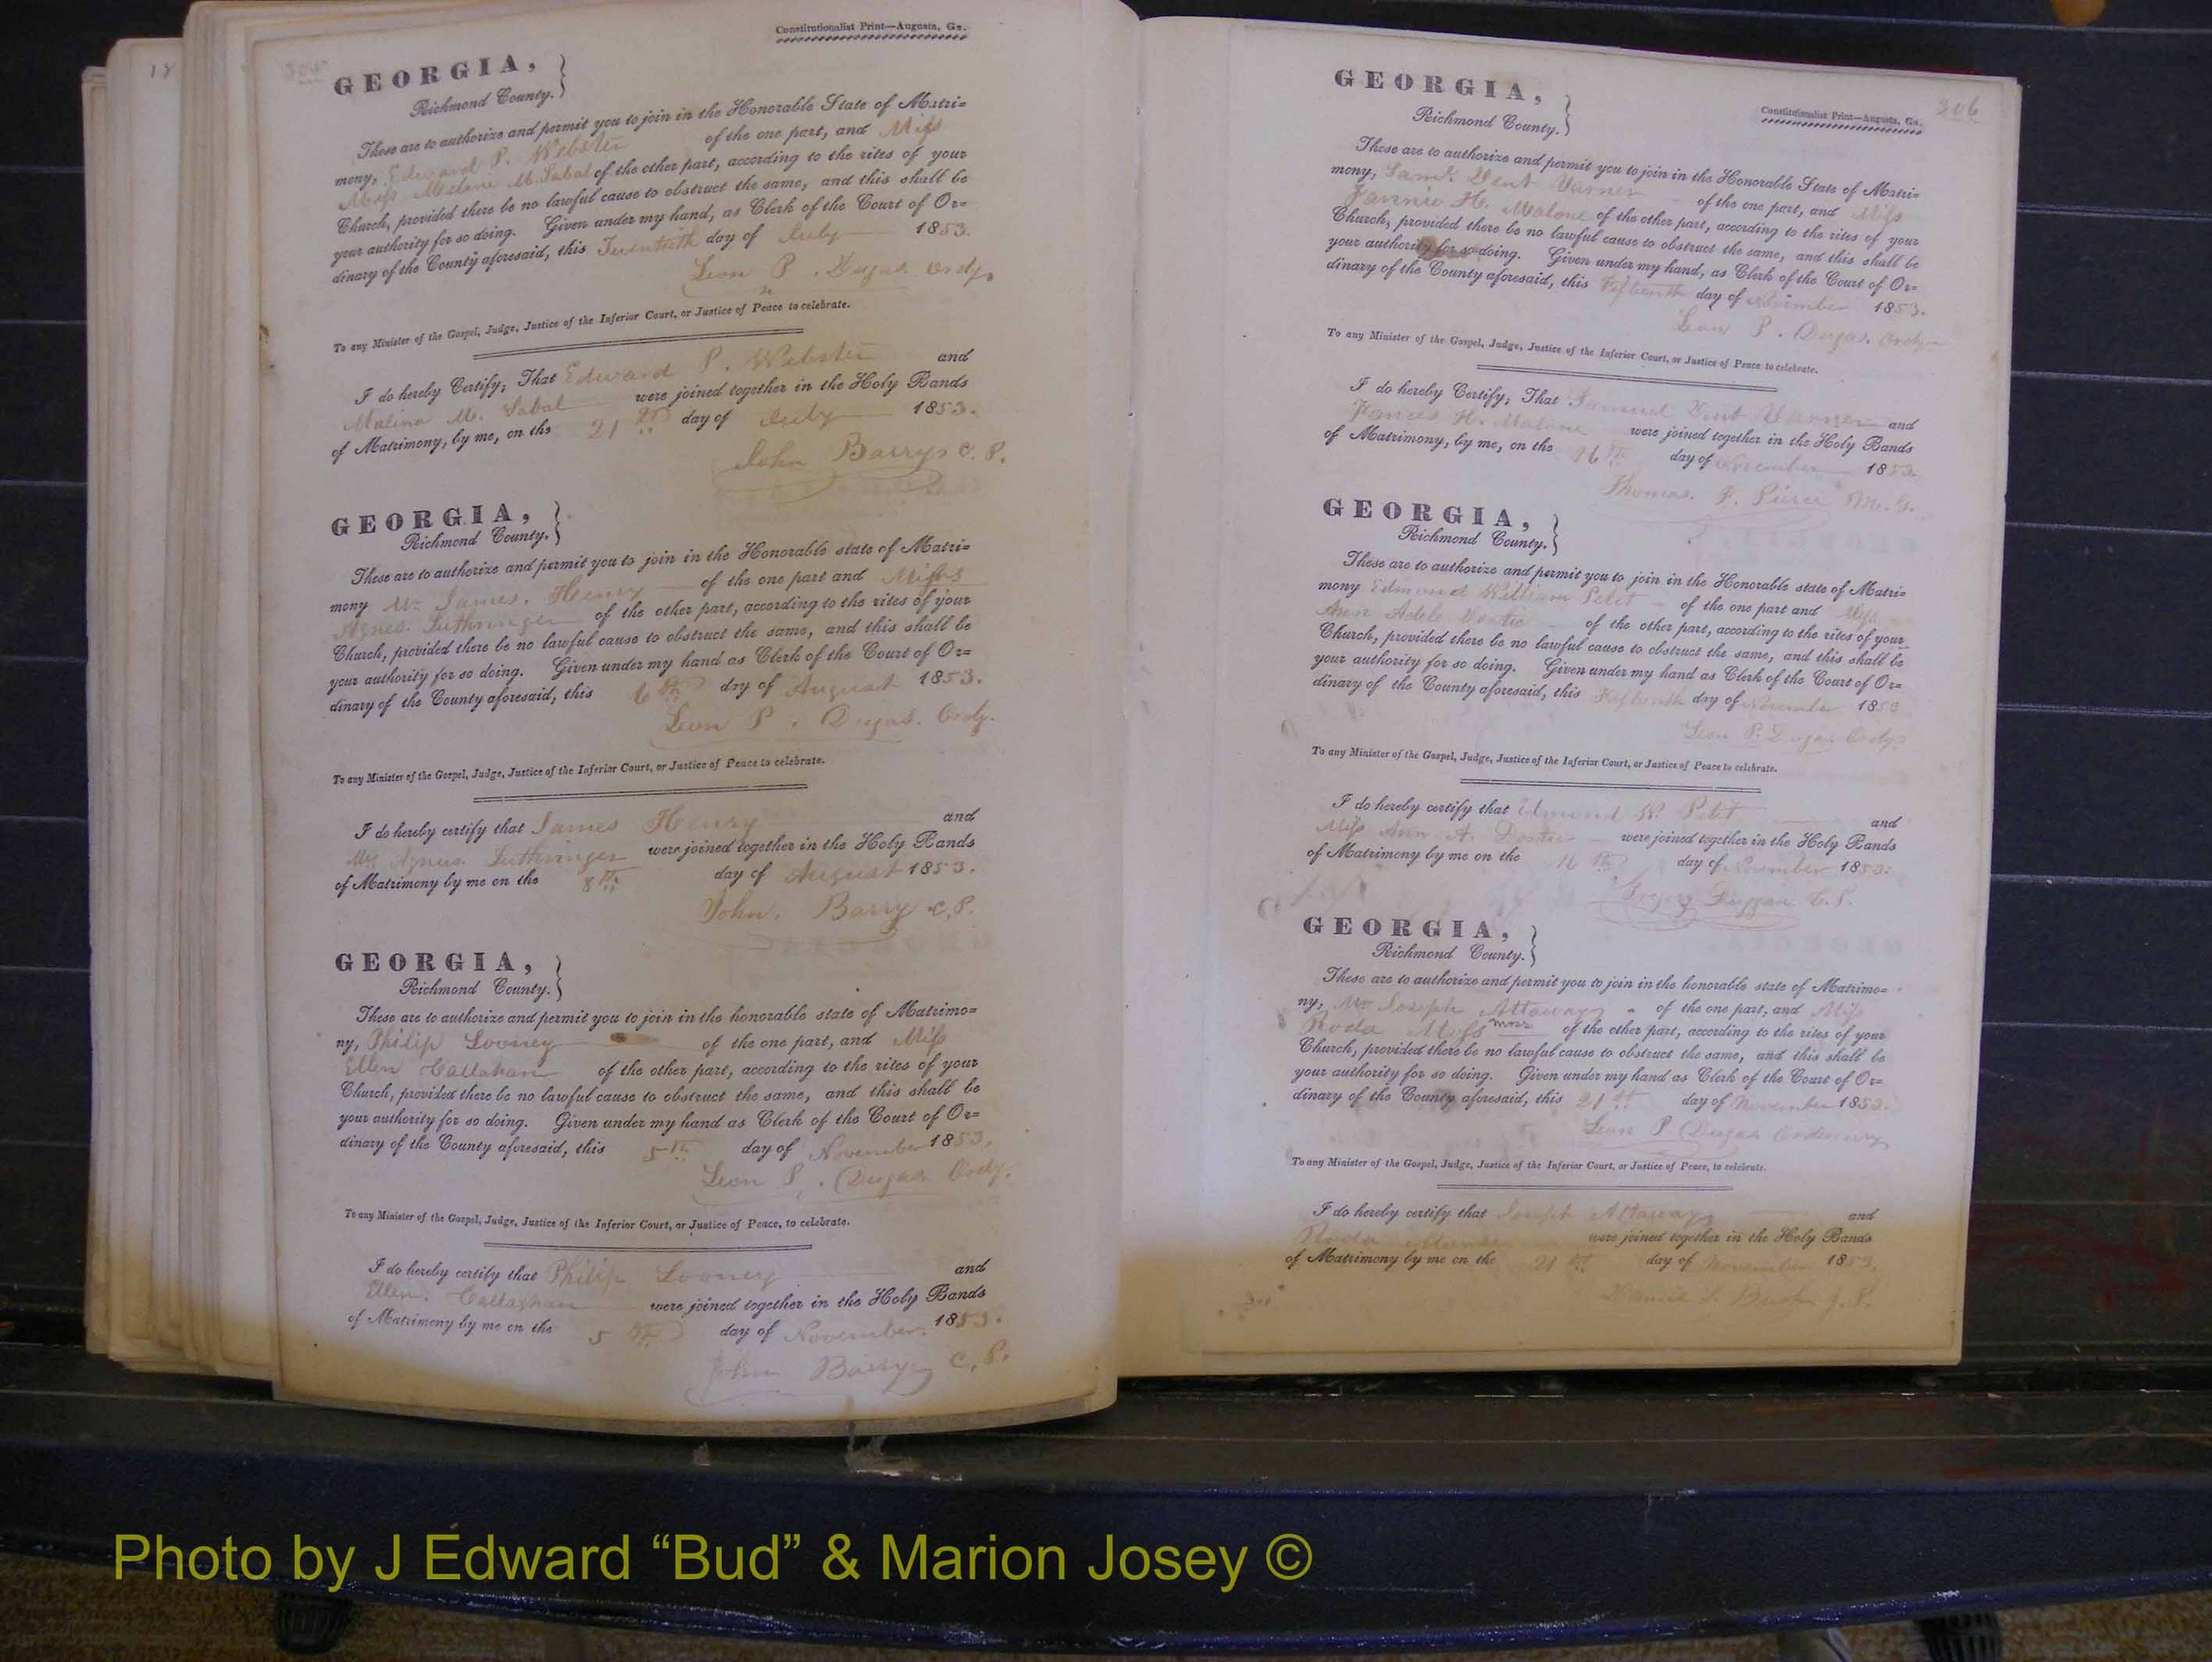 18
305
Constitutionalist Print—Augusta, Ga.
GEORGIA,
Richmond County.
These are to authorize and permit you to join in the Honorable State of Matri=
mony, Edward P. Webster of the one part, and Miss
Miss M. Sabal of the other part, according to the rites of your
Church, provided there be no lawful cause to obstruct the same, and this shall be
your authority for so doing. Given under my hand, as Clerk of the Court of Or=
dinary of the County aforesaid, this Twentieth day of July 1853.
Leon P. Dugas. Ordy.
To any Minister of the Gospel, Judge, Justice of the Inferior Court, or Justice of Peace to celebrate.
I do hereby Certify; That Edward P. Webster and
Malina M. Sabal were joined together in the Holy Bands
of Matrimony, by me, on the 21 day of July 1853.
John Barry C. P.
GEORGIA,
Richmond County.
These are to authorize and permit you to join in the Honorable state of Matri=
mony Mr James. Henry of the one part and
Agnes. Luthringer of the other part, according to the rites of your
Church, provided there be no lawful cause to obstruct the same, and this shall be
your authority for so doing. Given under my hand as Clerk of the Court of Or=
dinary of the County aforesaid, this 6th day of August 1853.
Leon P. Dugas. Ordy.
To any Minister of the Gospel, Judge, Justice of the Inferior Court, or Justice of Peace to celebrate.
I do hereby certify that James Henry and
Agnes. Luthringer were joined together in the Holy Bands
of Matrimony by me on the 8th day of August 1853.
John. Barry C. P.
GEORGIA,
Richmond County.
These are to authorize and permit you to join in the honorable state of Matrimo=
ny, Philip Looney of the one part, and Miss
Ellen Callahan of the other part, according to the rites of your
Church, provided there be no lawful cause to obstruct the same, and this shall be
your authority for so doing. Given under my hand as Clerk of the Court of Or=
dinary of the County aforesaid, this 5th day of November 1853.
Leon P. Dugas Ordy.
To any Minister of the Gospel, Judge, Justice of the Inferior Court, or Justice of Peace, to celebrate.
I do hereby certify that Philip Looney and
Ellen. Callaghan were joined together in the Holy Bands
of Matrimony by me on the 5th day of November. 1853.
John Barry C. P.
306
Constitutionalist Print—Augusta, Ga.
GEORGIA,
Richmond County.
These are to authorize and permit you to join in the Honorable State of Matri=
mony, Saml. Dent Varner of the one part, and Miss
Fannie H. Malone of the other part, according to the rites of your
Church, provided there be no lawful cause to obstruct the same, and this shall be
your authority for so doing. Given under my hand, as Clerk of the Court of Or=
dinary of the County aforesaid, this Fifteenth day of November 1853.
Leon P. Dugas. Ordy
To any Minister of the Gospel, Judge, Justice of the Inferior Court, or Justice of Peace to celebrate.
I do hereby Certify; That Samuel Dent Varner and
Frances H. Malone were joined together in the Holy Bands
of Matrimony, by me, on the 16th day of November 1853.
Thomas. F. Pierce M. G.
GEORGIA,
Richmond County.
These are to authorize and permit you to join in the Honorable state of Matri=
mony Edmond William Petit of the one part and Miss
Ann Adele of the other part, according to the rites of your
Church, provided there be no lawful cause to obstruct the same, and this shall be
your authority for so doing. Given under my hand as Clerk of the Court of Or=
dinary of the County aforesaid, this Fifteenth day of November 1853
Leon P. Dugas Ordy.
To any Minister of the Gospel, Judge, Justice of the Inferior Court, or Justice of Peace to celebrate.
I do hereby certify that Edmond W. Petit and
Miss Ann A. were joined together in the Holy Bands
of Matrimony by me on the 16th day of November 1853.
Gregory Duggan C. P.
GEORGIA,
Richmond County.
These are to authorize and permit you to join in the honorable state of Matrimo=
ny, Mr Joseph Attaway of the one part, and Miss
Roda of the other part, according to the rites of your
Church, provided there be no lawful cause to obstruct the same, and this shall be
your authority for so doing. Given under my hand as Clerk of the Court of Or=
dinary of the County aforesaid, this 21st day of November 1853.
Leon P Dugas Ordinary
To any Minister of the Gospel, Judge, Justice of the Inferior Court, or Justice of Peace, to celebrate.
I do hereby certify that Joseph Attaway and
Roda were joined together in the Holy Bands
of Matrimony by me on the 21st day of November 1853.
J. P.
Photo by J Edward “Bud” & Marion Josey ©